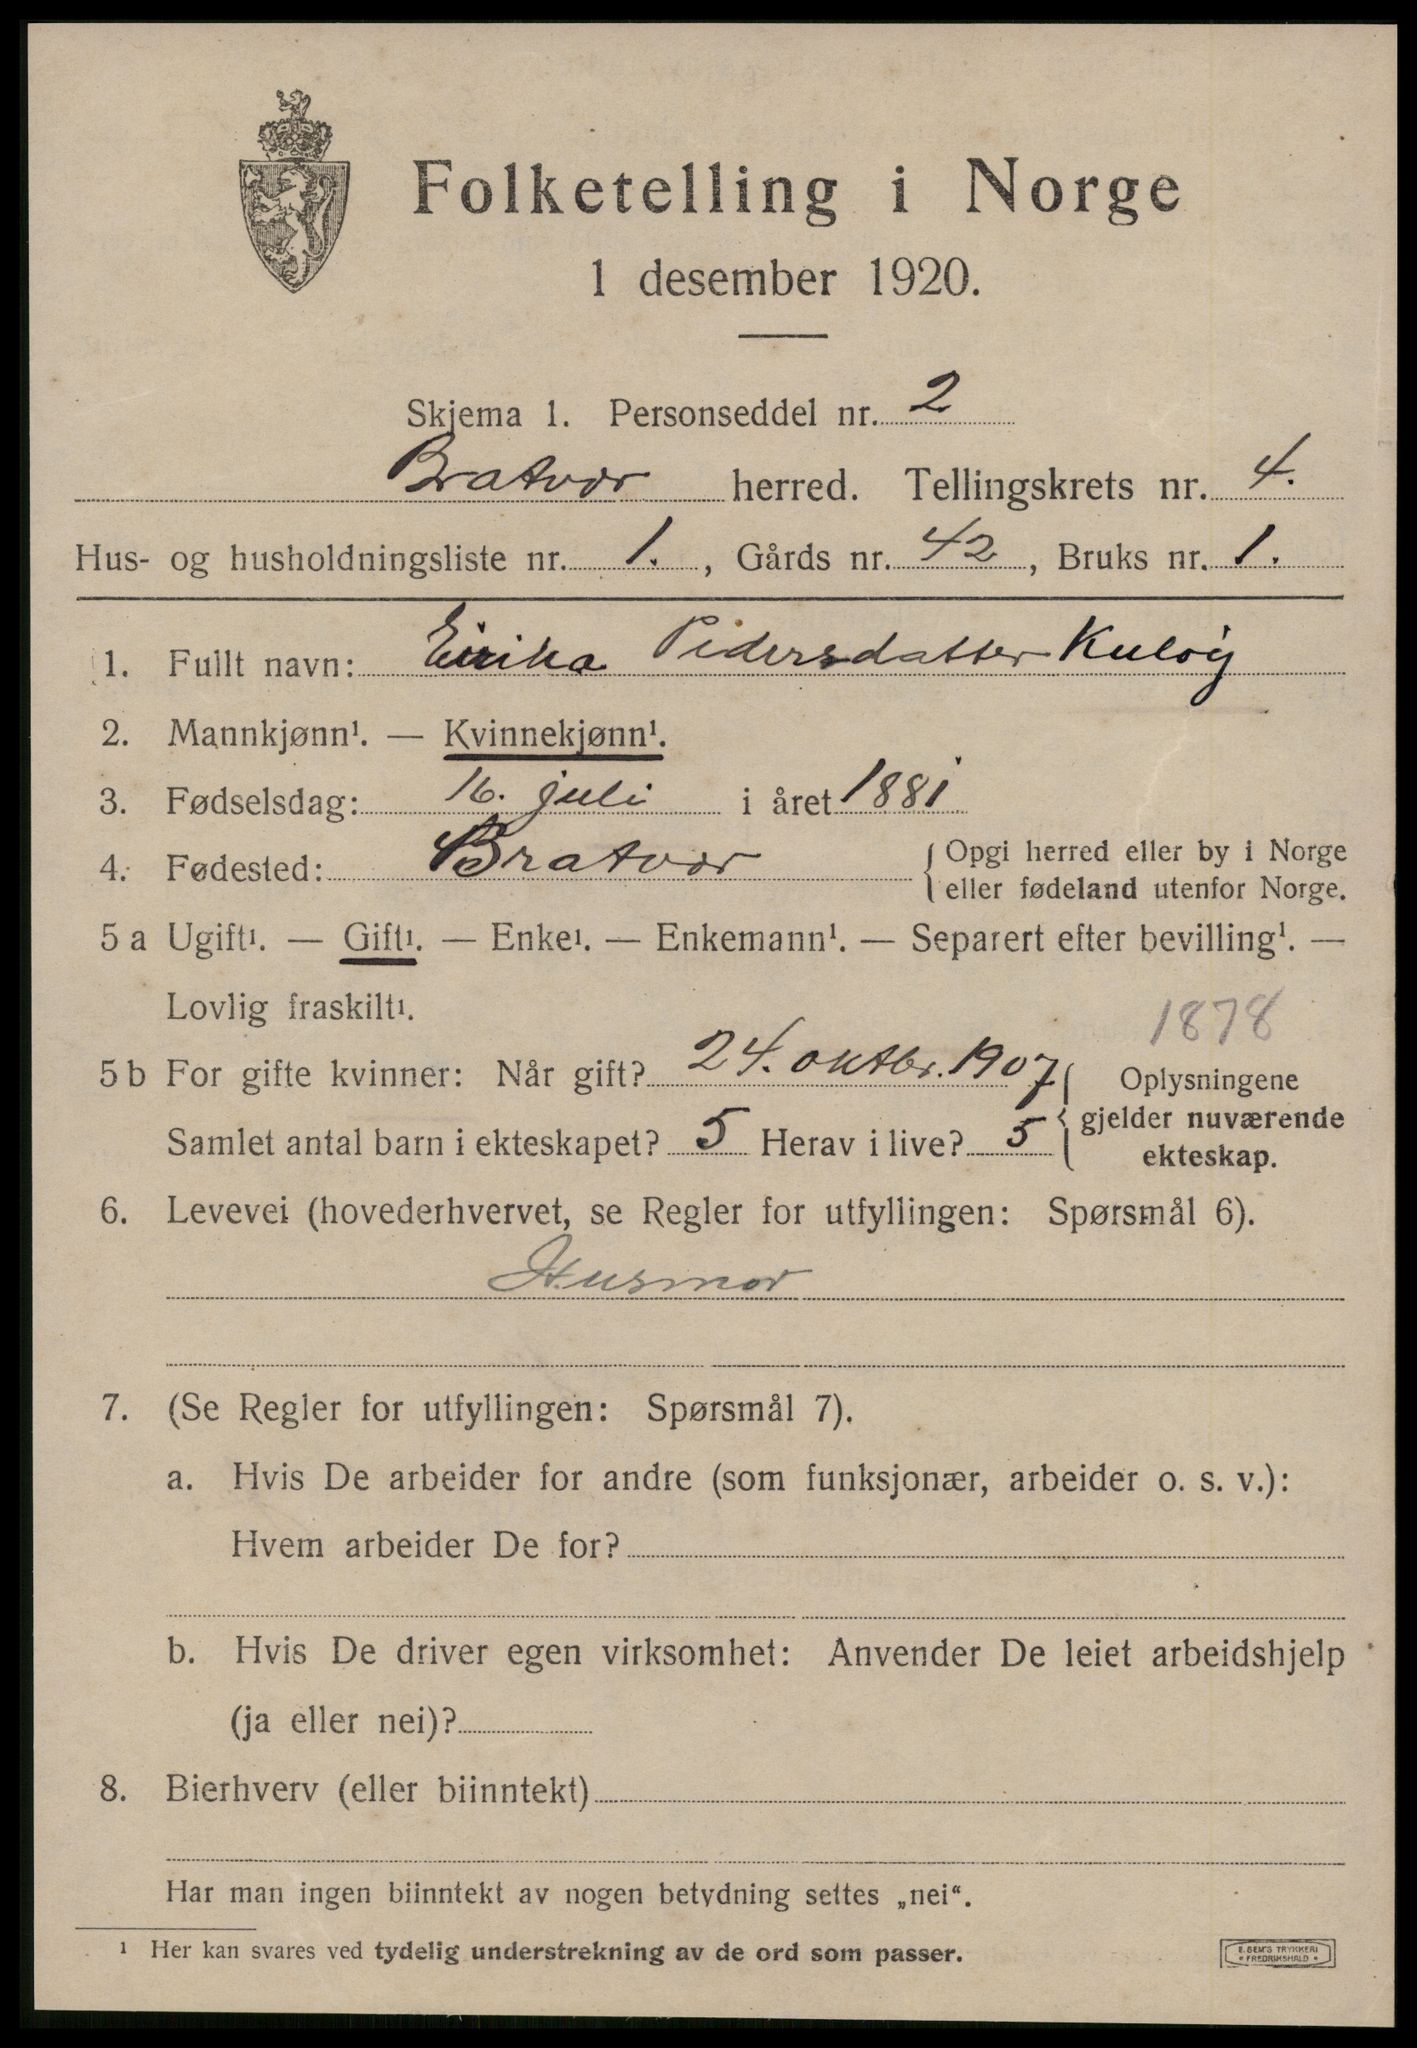 Folketelling i Norge
1 desember 1920.
Skjema 1. Personseddel nr. 2
Bratvær herred. Tellingskrets nr. 4.
Hus- og husholdningsliste nr. 1., Gårds nr. 42, Bruks nr. 1.
1. Fullt navn: Eirika Pedersdatter Kuløy
2. Mannkjønn¹. — Kvinnekjønn¹.
3. Fødselsdag: 16. juli i året 1881
4. Fødested: Bratvær { Opgi herred eller by i Norge
eller fødeland utenfor Norge.
5 a Ugift¹. — Gift¹. — Enke¹. — Enkemann¹. — Separert efter bevilling¹. —
Lovlig fraskilt¹.
1878
5 b For gifte kvinner: Når gift? 24. oktbr. 1907 { Oplysningene
gjelder nuværende
Samlet antal barn i ekteskapet? 5 Herav i live? 5
ekteskap.
6. Levevei (hovederhvervet, se Regler for utfyllingen: Spørsmål 6).
Husmor
7. (Se Regler for utfyllingen: Spørsmål 7).
a. Hvis De arbeider for andre (som funksjonær, arbeider o. s. v.):
Hvem arbeider De for?
b. Hvis De driver egen virksomhet: Anvender De leiet arbeidshjelp
(ja eller nei)?
8. Bierhverv (eller biinntekt)
Har man ingen biinntekt av nogen betydning settes „nei“.
¹ Her kan svares ved tydelig understrekning av de ord som passer.
E. SEM'S TRYKKERI
* FREDRIKSHALD *